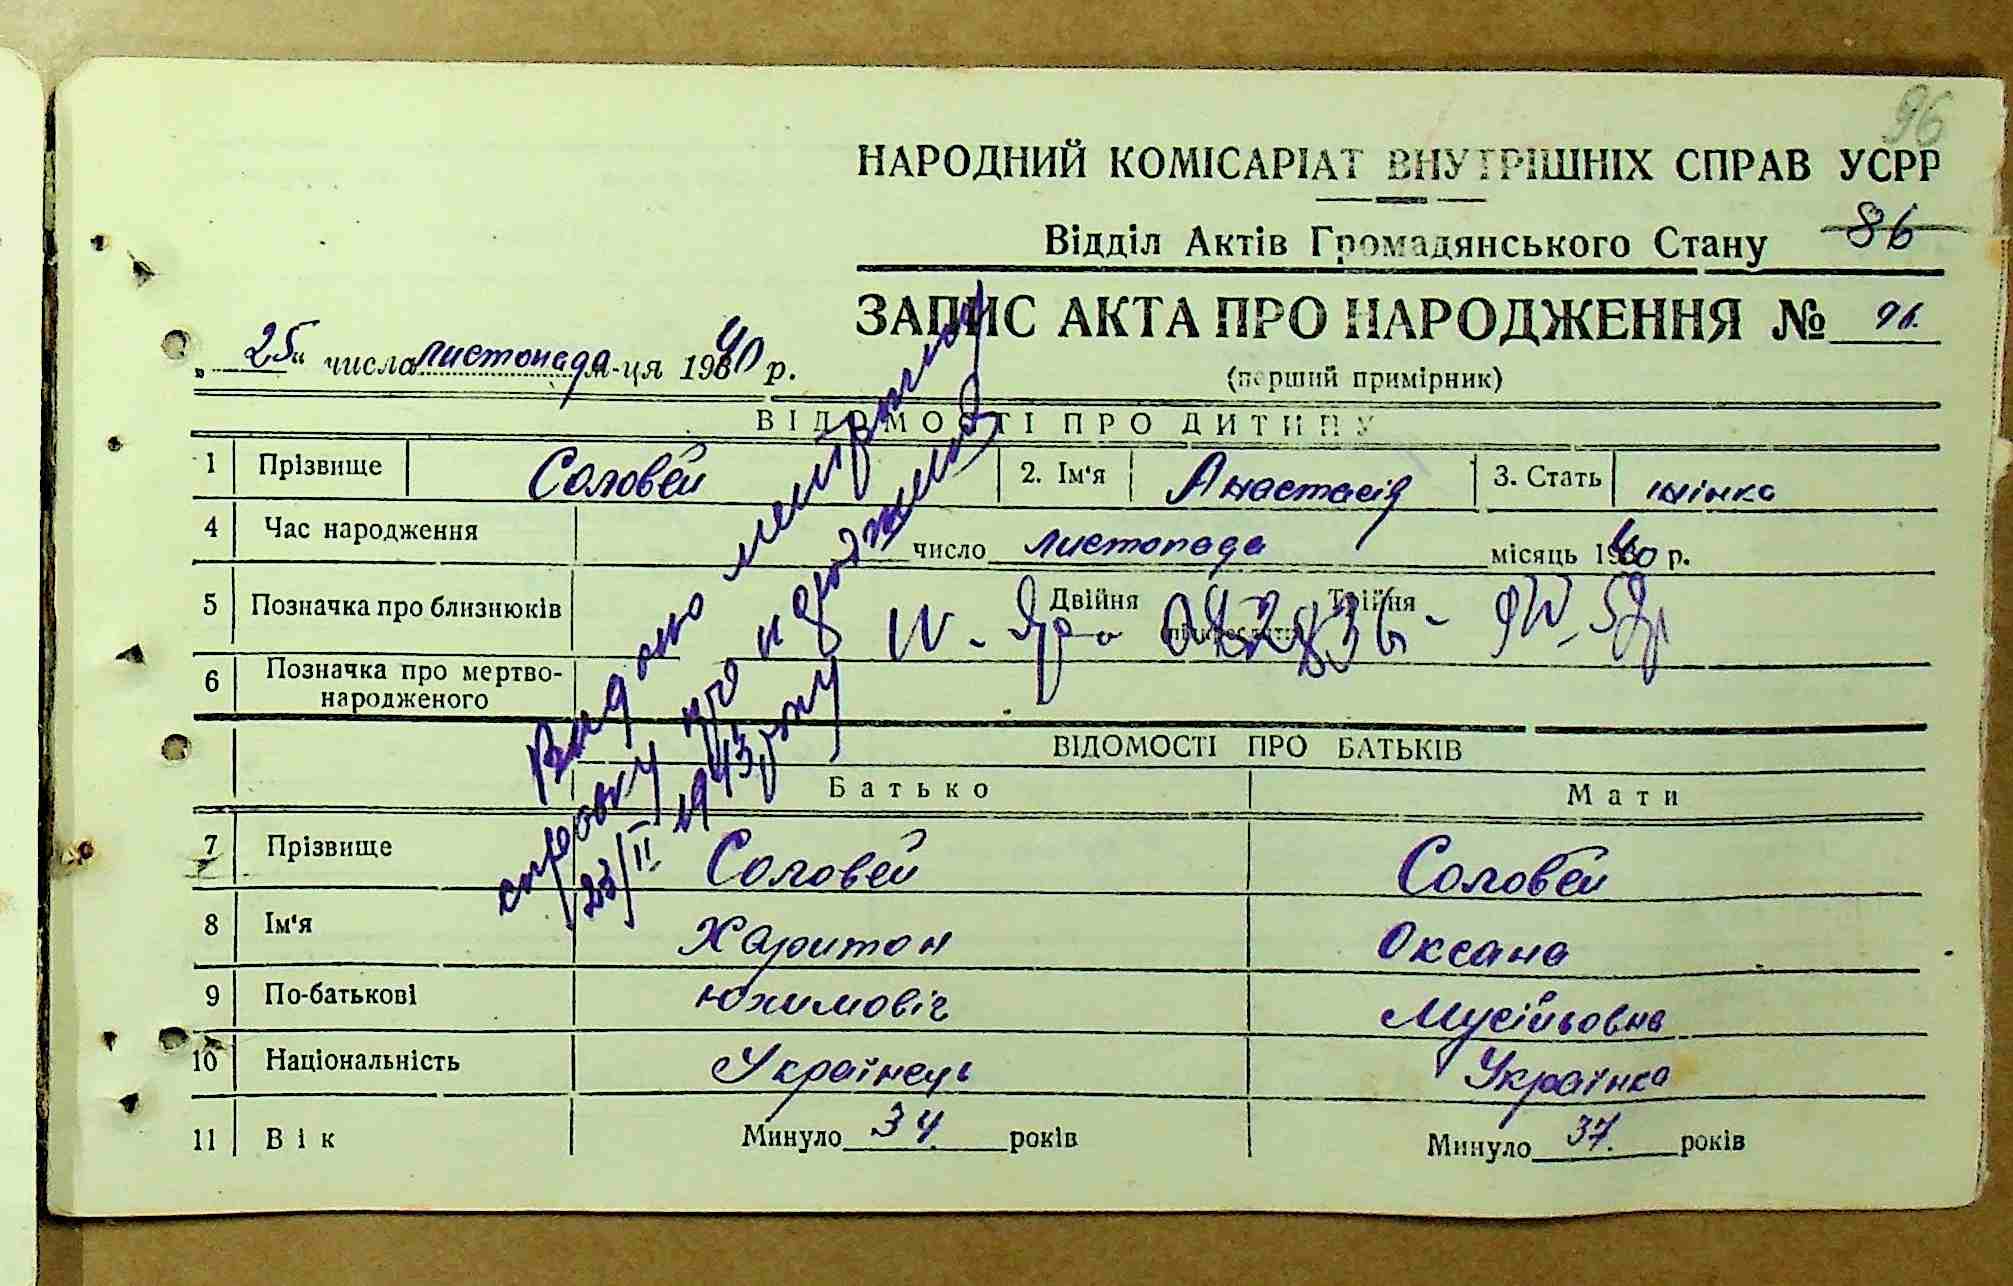 96
НАРОДНИЙ КОМІСАРІАТ ВНУТРІШНІХ СПРАВ УСРР
Відділ Актів Громадянського Стану 86
ЗАПИС АКТА ПРО НАРОДЖЕННЯ № 96.
(перший примірник)
„ 25 " числа листопада м-ця 1940 р.
ВІДОМОСТІ ПРО ДИТИНУ
1 Прізвище Соловей 2. Ім'я Анастасія 3. Стать жінка
4 Час народження число листопада місяць 1940 р.
5 Позначка про близнюків Двійня Трійня
6 Позначка про мертво-
народженого
Видано
справку про народження
23/II 1943 року
ВІДОМОСТІ ПРО БАТЬКІВ
Батько Мати
7 Прізвище Соловей Соловей
8 Ім'я Харитон Оксана
9 По-батькові Юхимовіч Мусійовна
10 Національність Українець Українка
11 Вік Минуло 34 років Минуло 37. років